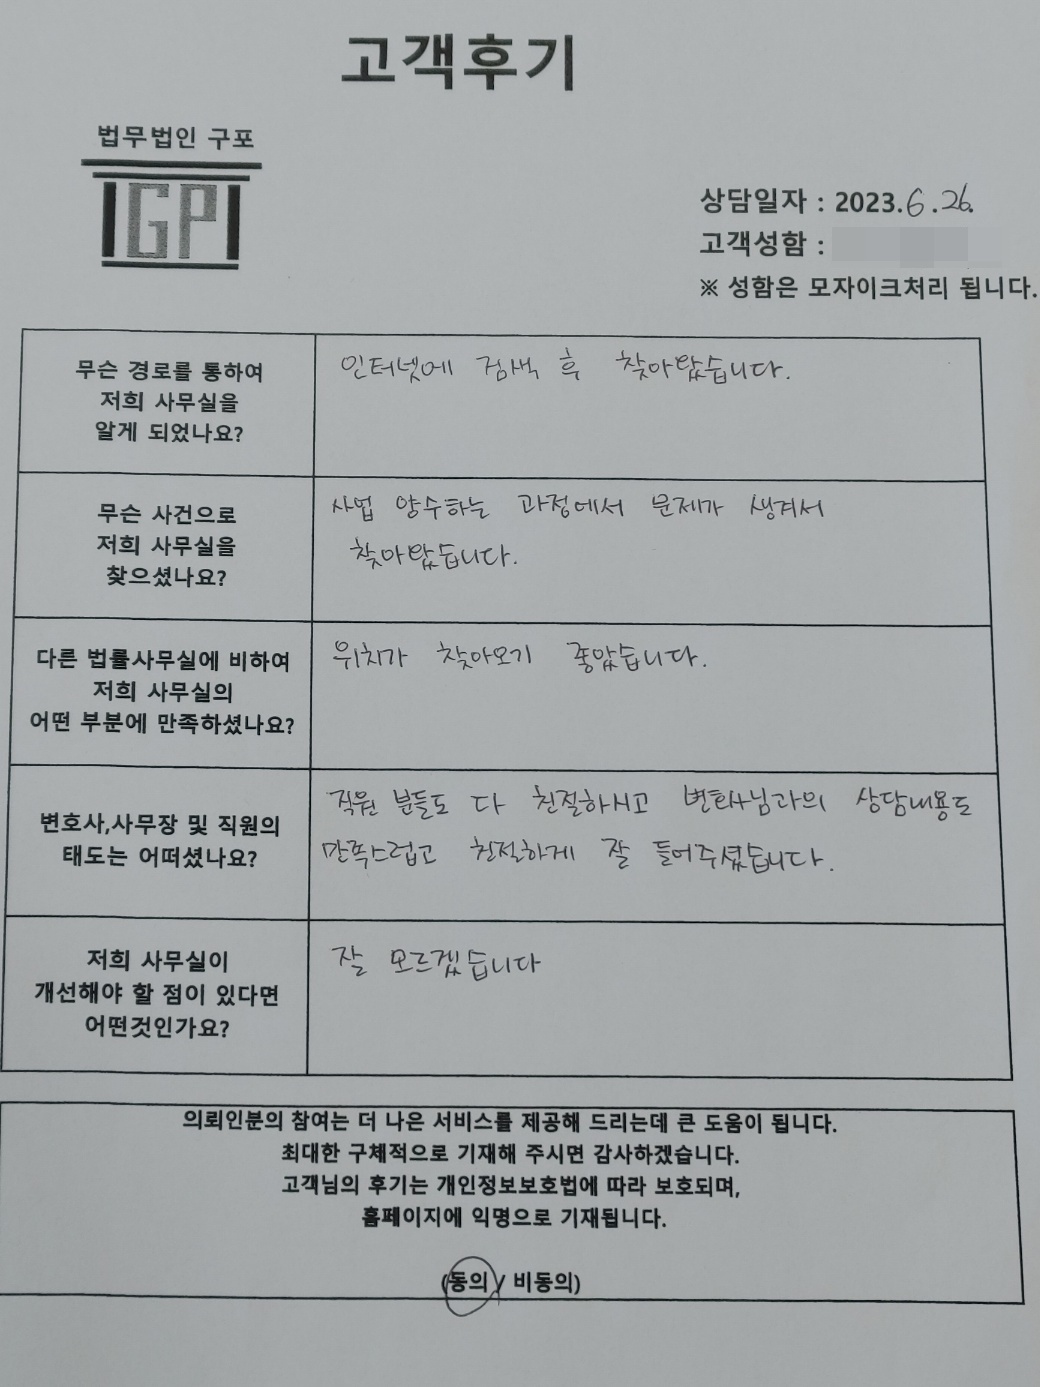 고객후기
법무법인 구포
IGPI
상담일자 : 2023.6.26.
고객성함 :
※ 성함은 모자이크처리 됩니다.
무슨 경로를 통하여
저희 사무실을
알게 되었나요?
인터넷에 검색 후 찾아왔습니다.
무슨 사건으로
저희 사무실을
찾으셨나요?
사업 양수하는 과정에서 문제가 생겨서
찾아왔습니다.
다른 법률사무실에 비하여
저희 사무실의
어떤 부분에 만족하셨나요?
위치가 찾아오기 좋았습니다.
변호사,사무장 및 직원의
태도는 어떠셨나요?
직원 분들도 다 친절하시고 변호사님과의 상담내용도
만족스럽고 친절하게 잘 들어주셨습니다.
저희 사무실이
개선해야 할 점이 있다면
어떤것인가요?
잘 모르겠습니다
의뢰인분의 참여는 더 나은 서비스를 제공해 드리는데 큰 도움이 됩니다.
최대한 구체적으로 기재해 주시면 감사하겠습니다.
고객님의 후기는 개인정보보호법에 따라 보호되며,
홈페이지에 익명으로 기재됩니다.
(동의 / 비동의)